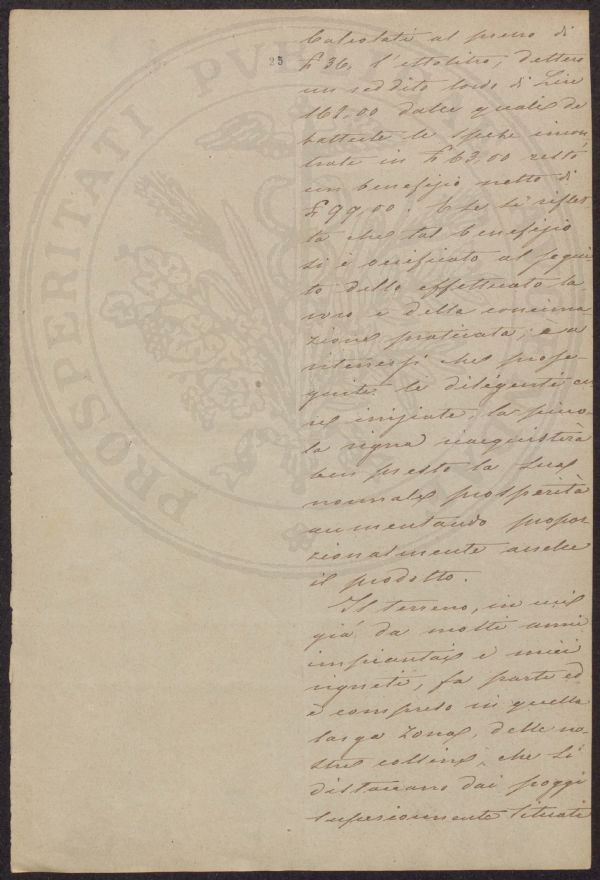 25
Calcolati al prezzo di
£ 36, l'ettolitro, dettero
un reddito lordo di Lire
162,00 dalle quali de
battute le spese incon
trate in £ 63,00 restò
un benefizio netto di
£ 99,00. E se si riflet
ta che tal benefizio
si è verificato al segui
to dello effettuato la
voro e della concima
zione praticata, è a
ritenersi che prose-
guite le diligenti cu
re iniziate, la picco-
la vigna riacquisterà
ben presto la sua
normale prosperità
aumentando propor
zionalmente anche
il prodotto.
Il terreno, in cui
già da molti anni
impiantai i miei
vigneti, fa parte ed
è compreso in quella
larga zona, delle no-
stre colline, che si
distaccano dai poggi
superiormente situati
PROSPERITATI PVB